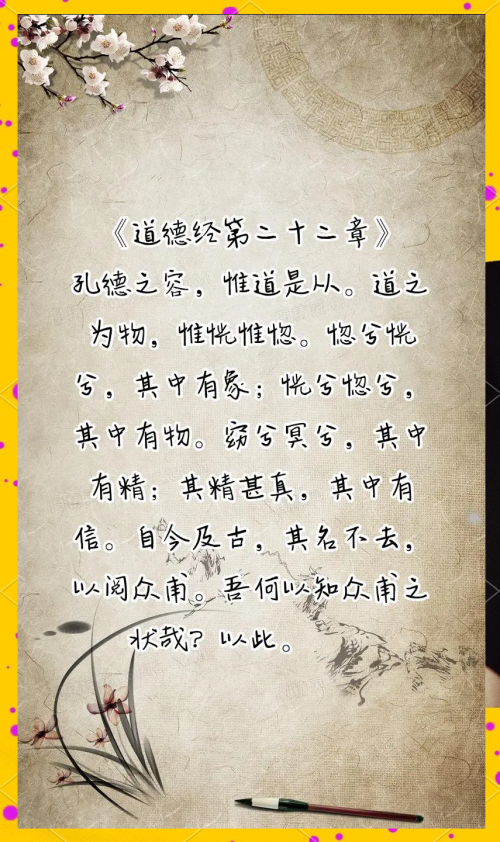 《道德经第二十二章》
孔德之容，惟道是从。道之
为物，惟恍惟惚。惚兮恍
兮，其中有象；恍兮惚兮，
其中有物。窈兮冥兮，其中
有精；其精甚真，其中有
信。自今及古，其名不去，
以阅众甫。吾何以知众甫之
状哉？以此。